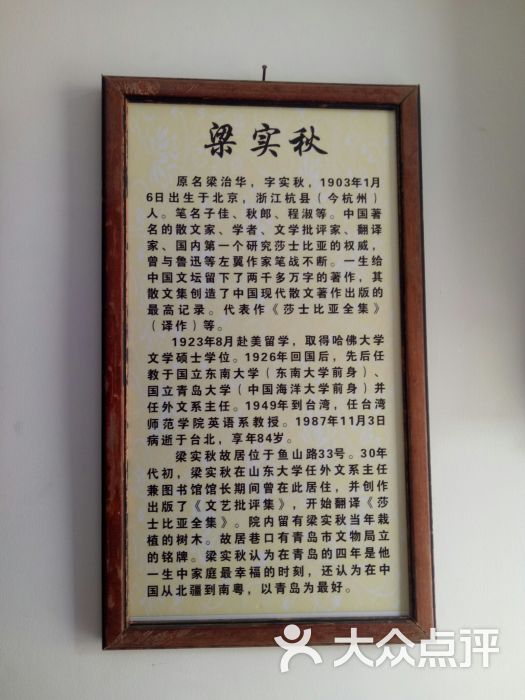 梁实秋
原名梁治华，字实秋，1903年1月
6日出生于北京，浙江杭县（今杭州）
人。笔名子佳、秋郎、程淑等。中国著
名的散文家、学者、文学批评家、翻译
家、国内第一个研究莎士比亚的权威，
曾与鲁迅等左翼作家笔战不断。一生给
中国文坛留下了两千多万字的著作，其
散文集创造了中国现代散文著作出版的
最高记录。代表作《莎士比亚全集》
（译作）等。
1923年8月赴美留学，取得哈佛大学
文学硕士学位。1926年回国后，先后任
教于国立东南大学（东南大学前身）、
国立青岛大学（中国海洋大学前身）并
任外文系主任。1949年到台湾，任台湾
师范学院英语系教授。1987年11月3日
病逝于台北，享年84岁。
梁实秋故居位于鱼山路33号。30年
代初，梁实秋在山东大学任外文系主任
兼图书馆馆长期间曾在此居住，并创作
出版了《文艺批评集》，开始翻译《莎
士比亚全集》。院内留有梁实秋当年栽
植的树木。故居巷口有青岛市文物局立
的铭牌。梁实秋认为在青岛的四年是他
一生中家庭最幸福的时刻，还认为在中
国从北疆到南粤，以青岛为最好。
大众点评